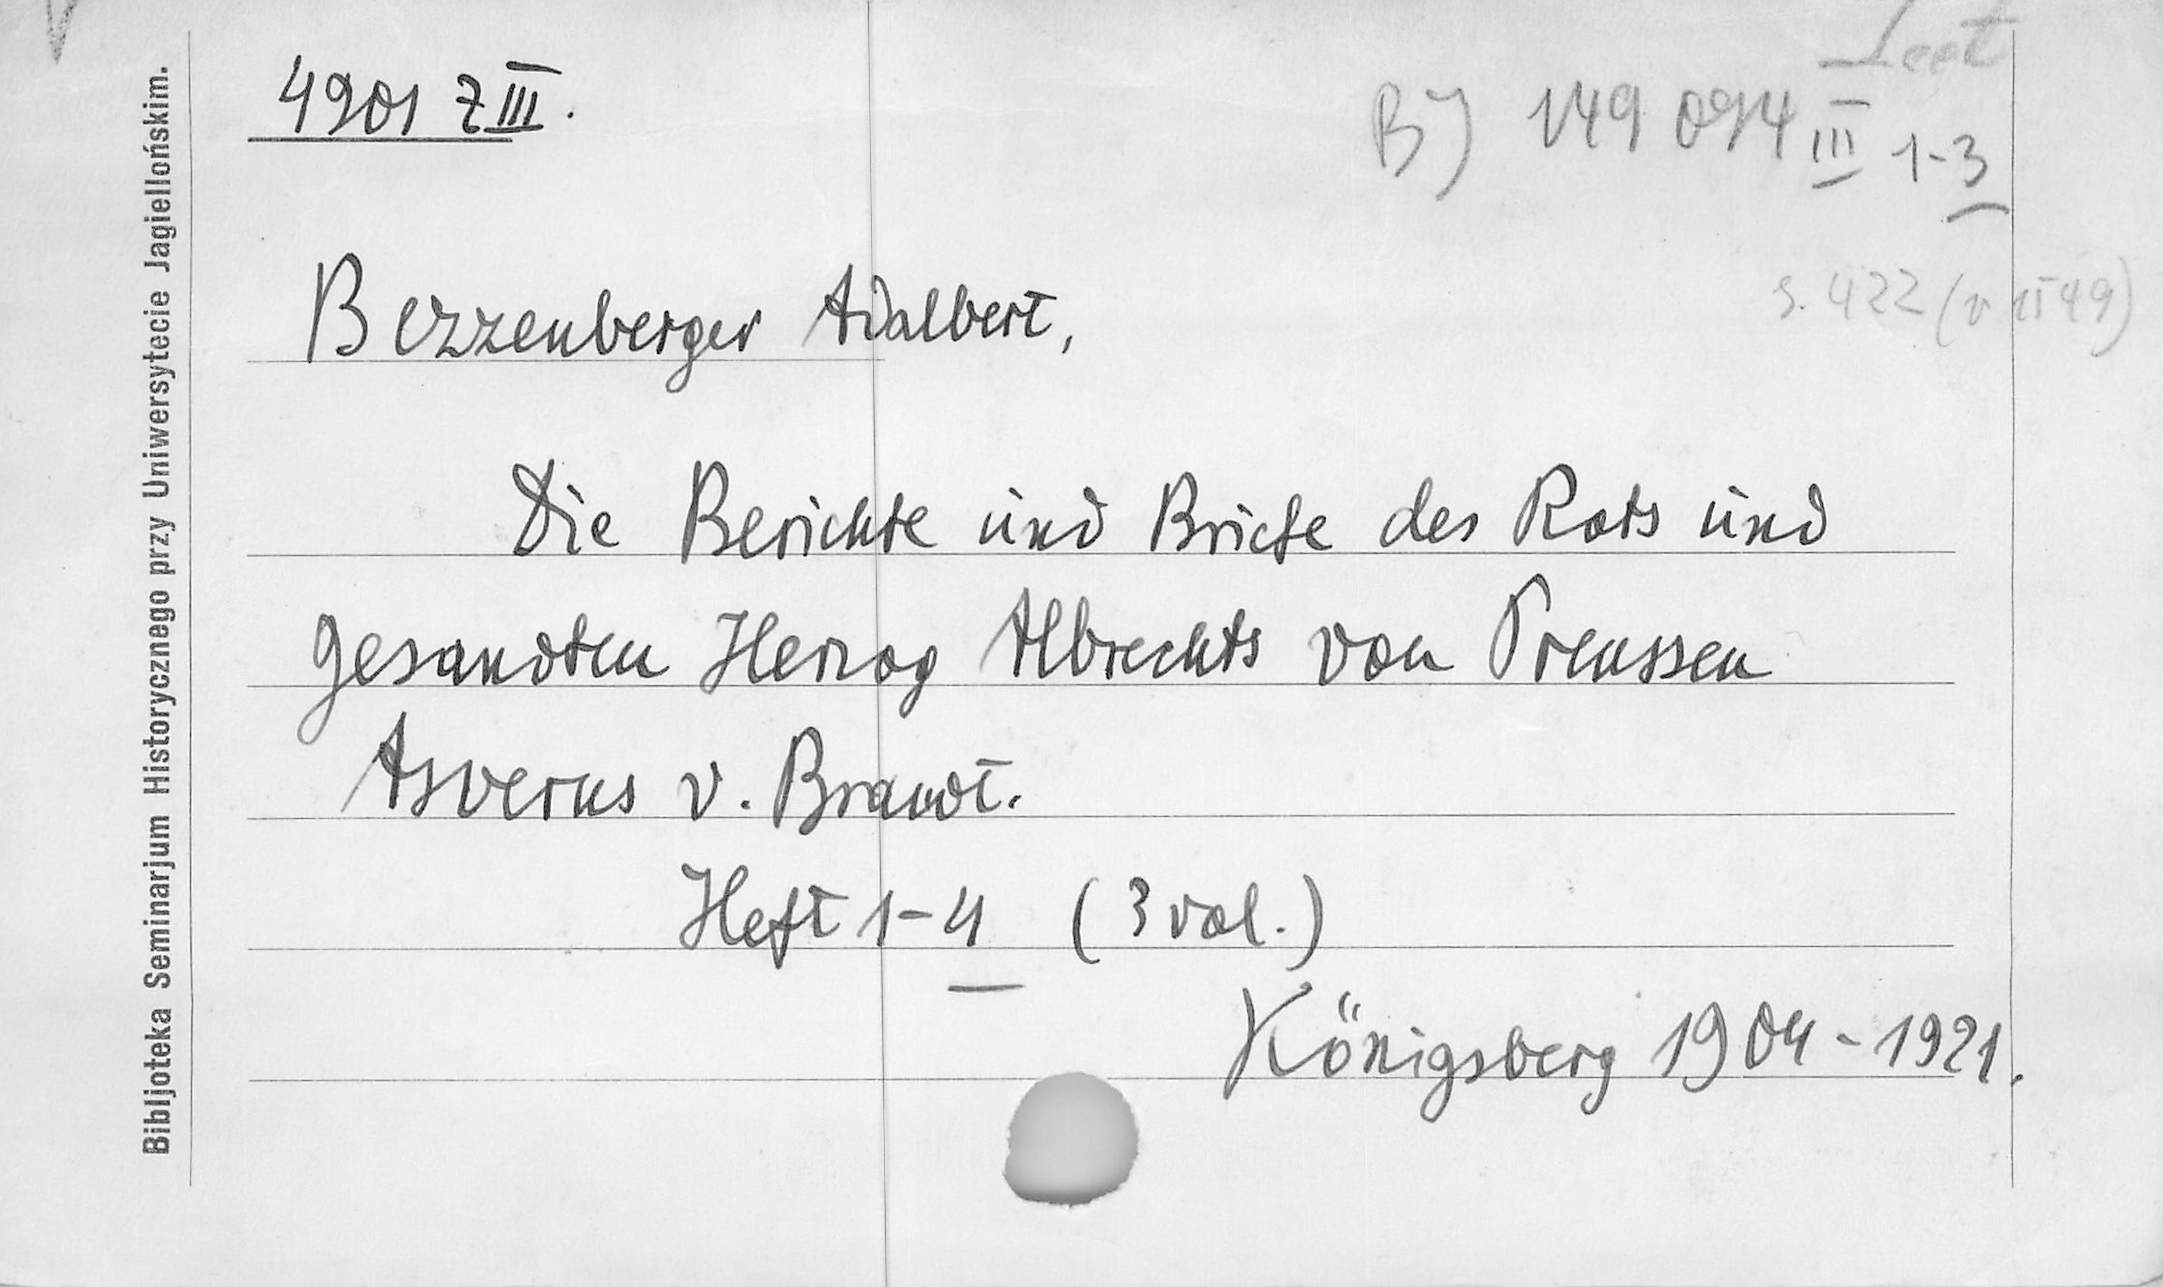 4901 Z III.
BJ 149 094 III 1-3
s. 422 (v II 49)
Bezzenberger Adalbert,
Die Berichte und Briefe des Rats und
Gesandten Herzog Albrechts von Preussen
Asverus v. Brandt.
Heft 1-4 (3 vol.)
Königsberg 1904-1921.
Bibljoteka Seminarjum Historycznego przy Uniwersytecie Jagiellońskim.